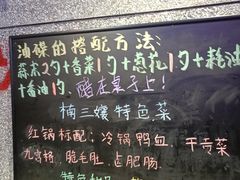 油碟的搭配方法:
蒜末2勺+香菜1勺+葱花1勺+耗油
+香油1勺,醋在桌子上!
楠三嬢特色菜
红锅标配:冷锅鸭血、干贡菜
九宫格、脆毛肚、卤肥肠